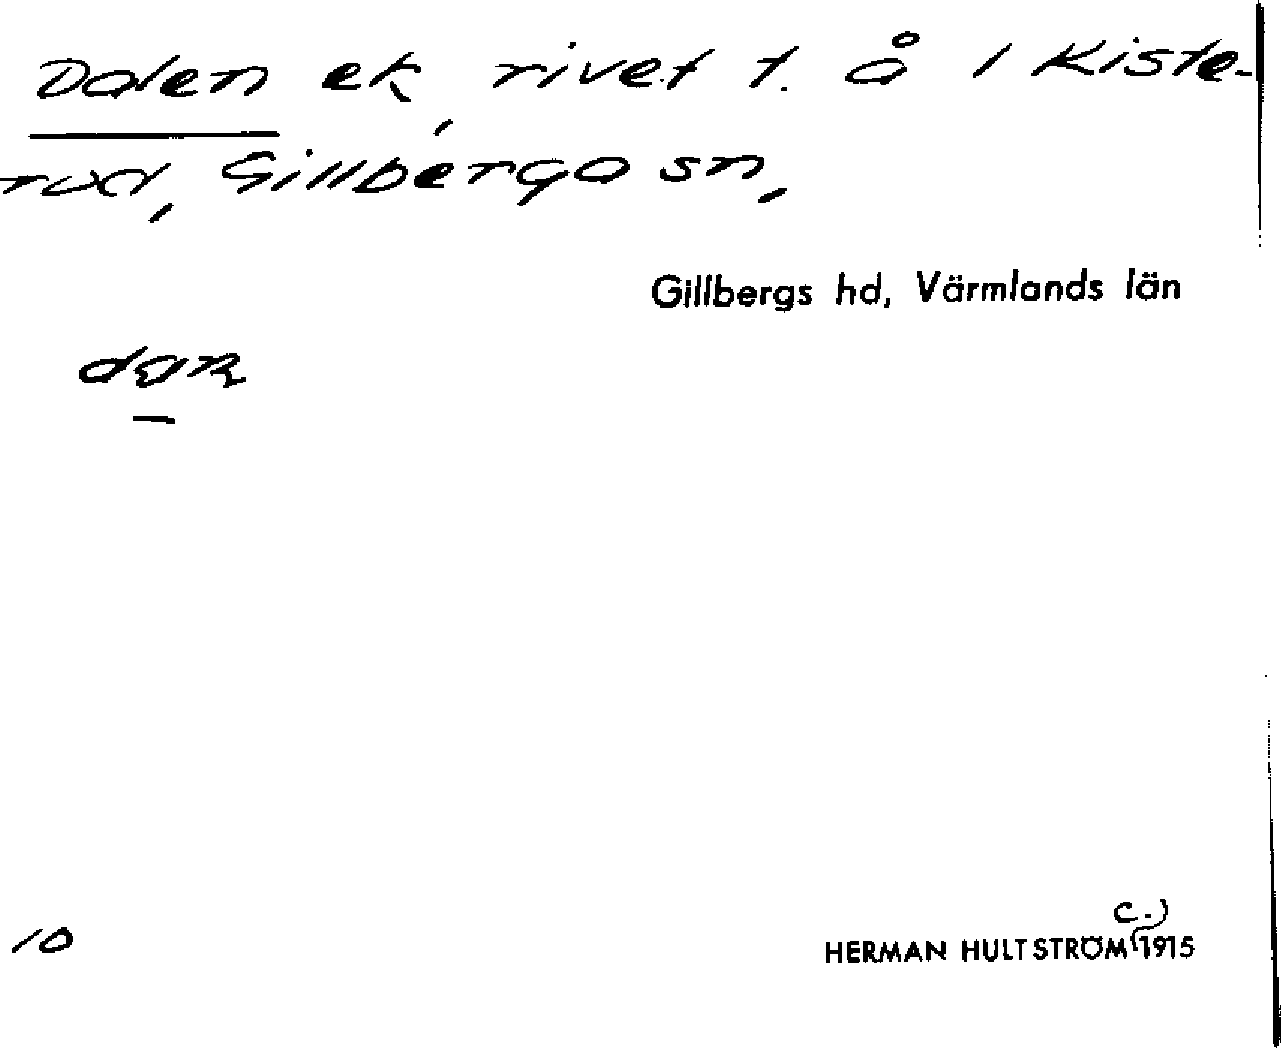 Dalen ek, rivet t. å 1 Kiste-
rud, Gillberga sn,
Gillbergs hd, Värmlands län
10
c.)
HERMAN HULTSTRÖM 1915